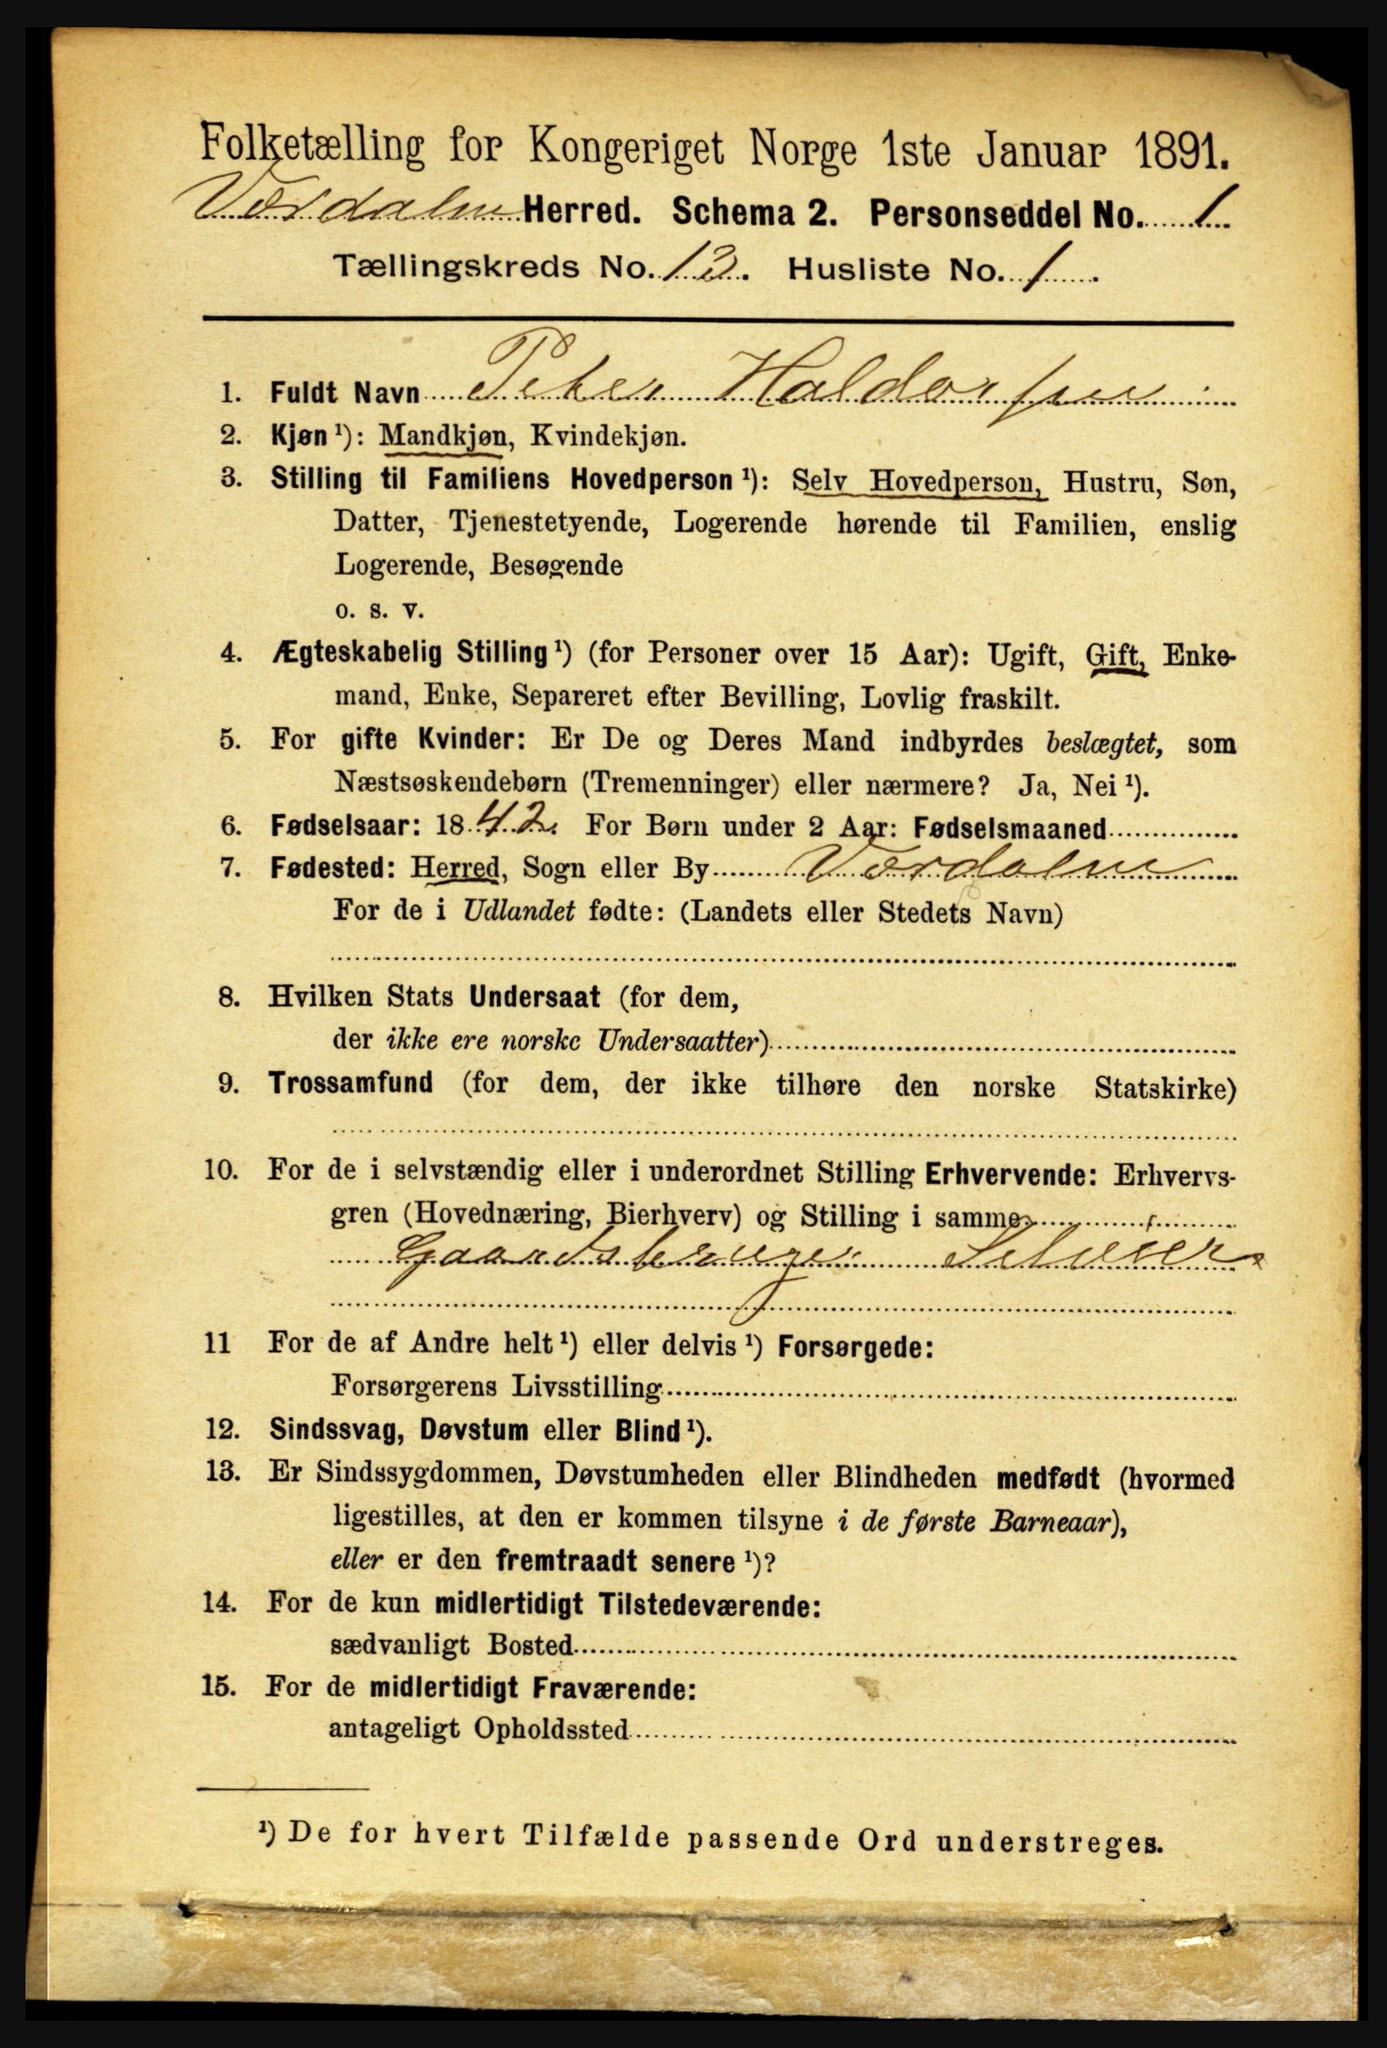 Folketælling for Kongeriget Norge 1ste Januar 1891.
Værdalen Herred. Schema 2. Personseddel No. 1
Tællingskreds No. 13. Husliste No. 1.
1. Fuldt Navn Peter Haldorsen
2. Kjøn ¹): Mandkjøn, Kvindekjøn.
3. Stilling til Familiens Hovedperson ¹): Selv Hovedperson, Hustru, Søn,
Datter, Tjenestetyende, Logerende hørende til Familien, enslig
Logerende, Besøgende
o. s. v.
4. Ægteskabelig Stilling ¹) (for Personer over 15 Aar): Ugift, Gift, Enke-
mand, Enke, Separeret efter Bevilling, Lovlig fraskilt.
5. For gifte Kvinder: Er De og Deres Mand indbyrdes beslægtet, som
Næstsøskendebørn (Tremenninger) eller nærmere? Ja, Nei ¹).
6. Fødselsaar: 1842. For Børn under 2 Aar: Fødselsmaaned
7. Fødested: Herred, Sogn eller By Værdalen
For de i Udlandet fødte: (Landets eller Stedets Navn)
8. Hvilken Stats Undersaat (for dem,
der ikke ere norske Undersaatter)
9. Trossamfund (for dem, der ikke tilhøre den norske Statskirke)
10. For de i selvstændig eller i underordnet Stilling Erhvervende: Erhvervs-
gren (Hovednæring, Bierhverv) og Stilling i samme
Gaardsbruger Selveier
11 For de af Andre helt ¹) eller delvis ¹) Forsørgede:
Forsørgerens Livsstilling
12. Sindssvag, Døvstum eller Blind ¹).
13. Er Sindssygdommen, Døvstumheden eller Blindheden medfødt (hvormed
ligestilles, at den er kommen tilsyne i de første Barneaar),
eller er den fremtraadt senere ¹)?
14. For de kun midlertidigt Tilstedeværende:
sædvanligt Bosted
15. For de midlertidigt Fraværende:
antageligt Opholdssted
¹) De for hvert Tilfælde passende Ord understreges.